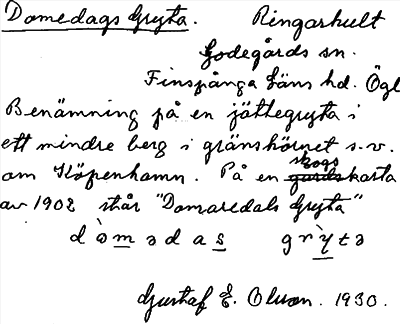 Domedags Gryta. Ringarhult
Godegårds sn.
Finspånga Läns hd. Ögl
Benämning på en jättegryta i
ett mindre berg i gränshörnet s.v.
om Köpenhamn. På en skogskarta
av 1902 står "Domaredals Gryta"
dòmədas grỳtə
Gustaf E. Olsson. 1930.